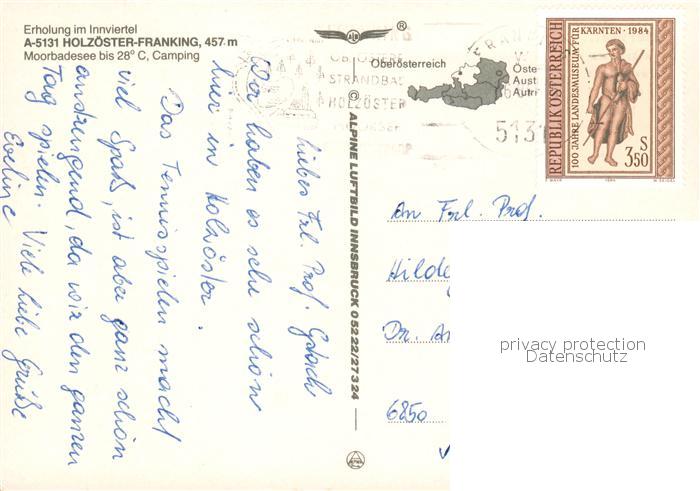 Erholung im Innviertel
A-5131 HOLZÖSTER-FRANKING, 457 m
Moorbadesee bis 28° C, Camping
®
Oberösterreich
STRANDBAD
HOLZÖSTER
5131
REPUBLIK ÖSTERREICH
100 JAHRE LANDESMUSEUM FÜR
KÄRNTEN · 1984
S
3,50
© ALPINE LUFTBILD INNSBRUCK 0 52 22/2 73 24
Liebes Frl. Prof.
Wir haben es sehr schön
hier in Holzöster.
Das Tennisspielen macht
viel Spaß, ist aber ganz schön
anstrengend, da wir den ganzen
Tag spielen. Viele liebe Grüße
Eveline
An Frl. Prof.
Hilde
Dr. An
6850
privacy protection
Datenschutz